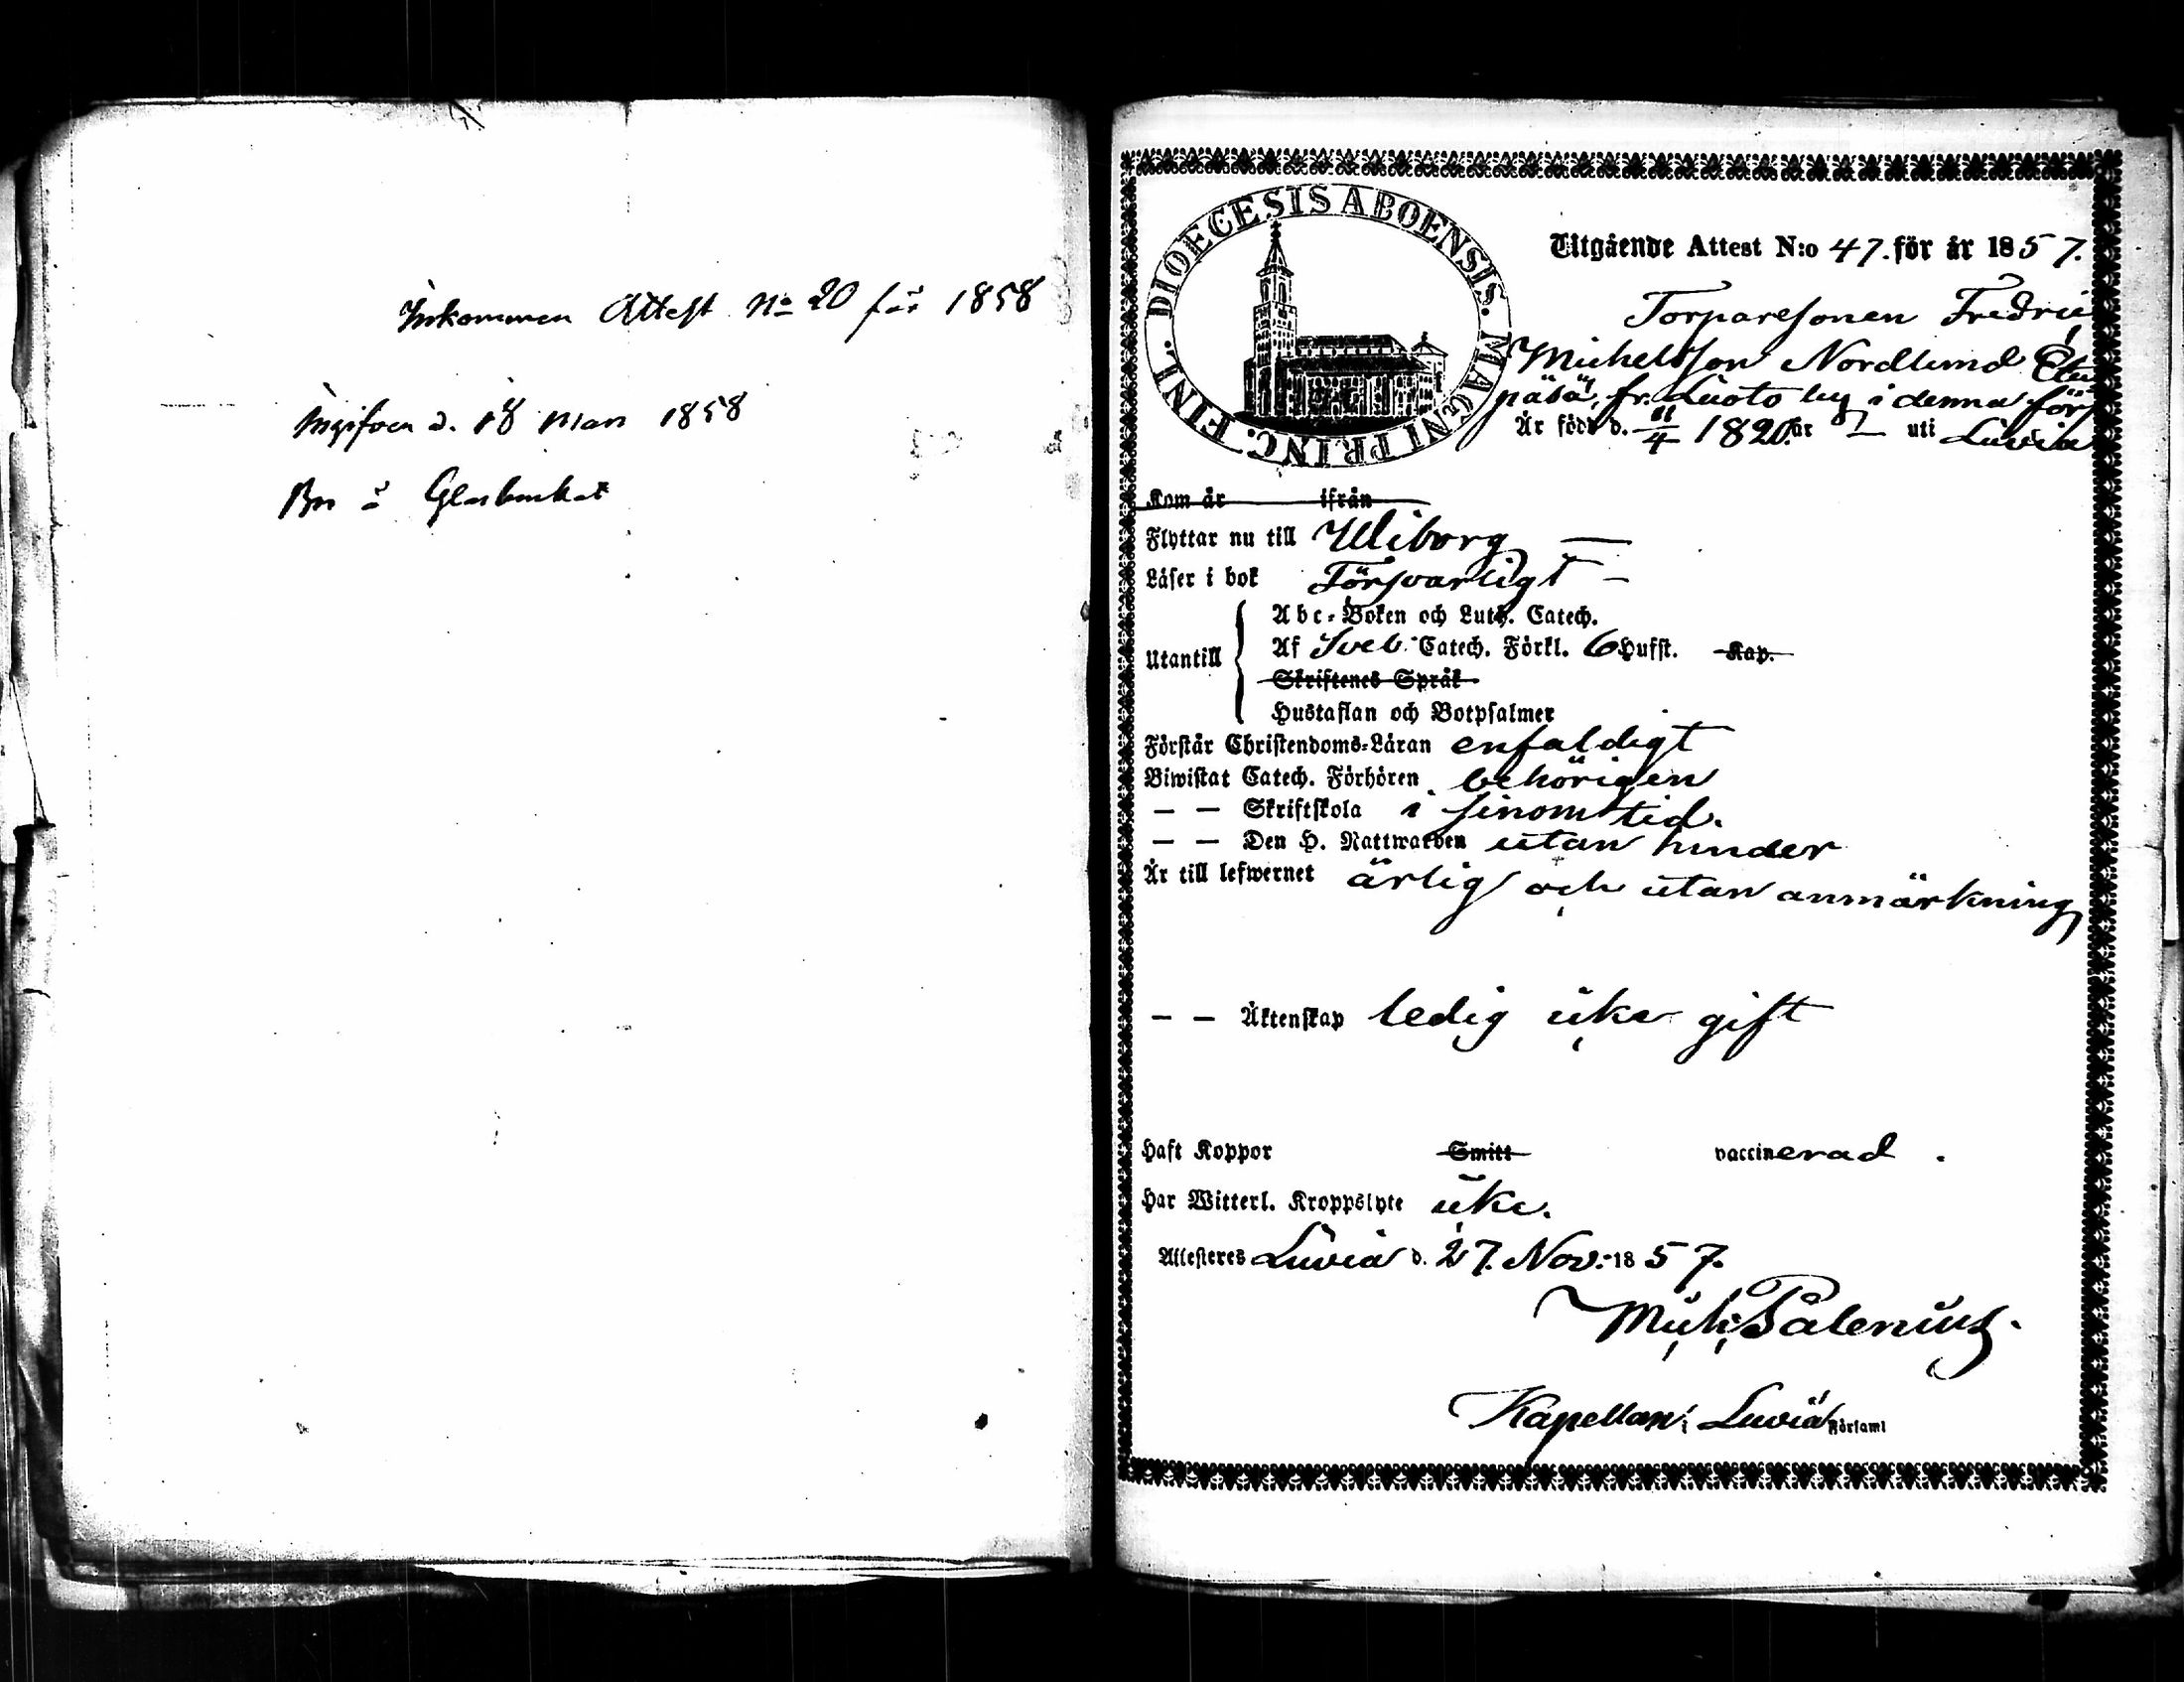 Inkommen Attest No 20 för 1858
Ingifven d. 18 Mars 1858
Bor å
DIOECESIS ABOENSIS. MAGNI PRINC. FINL.
Utgående Attest N:o 47. för år 1857.
Torparesonen Fredric
Michelsson Nordlund Etu
päbä, fr. Luoto by i denna förs
Är född d. 11/4 1820. år — uti Luvia
Kom år ifrån
Flyttar nu till Wiborg —
Läser i bok Försvarligt —
Utantill
Abc-Boken och Luth. Catech.
Af Sveb. Catech. Förkl. 6 Hufst. Kap.
Skriftenes Språk
Hustaflan och Botpsalmer
Förstår Christendoms-Läran enfaldigt
Biwistat Catech. Förhören behörigen
— — Skriftskola i sinom tid.
— — Den H. Nattwarden utan hinder
Är till lefwernet ärlig och utan anmärkning
— — Äktenskap ledig icke gift
Haft Koppor Smitt vaccinerad.
Har Witterl. Kroppslyte icke.
Attesteres Luvia d. 27. Nov. 1857.
Mich. Palenius.
Kapellan i Luvia Församl